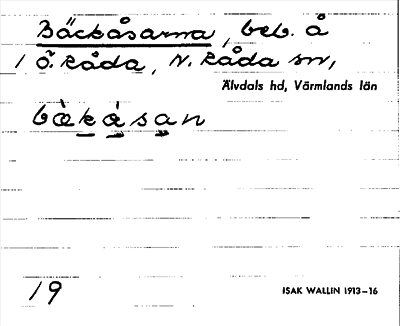 Bäckåsarna, beb. å
1 Ö. Råda, N. Råda sn,
Älvdals hd, Värmlands län
bὰkåsan
19
ISAK WALLIN 1913–16